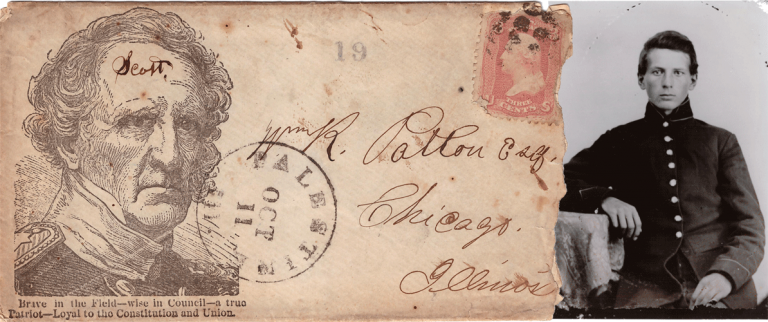 Scott.
19
THREE
CENTS
PALESTINE
OCT
11
Wm K. Patton Esq.
Chicago.
Illinois
Brave in the Field—wise in Council—a true
Patriot—Loyal to the Constitution and Union.